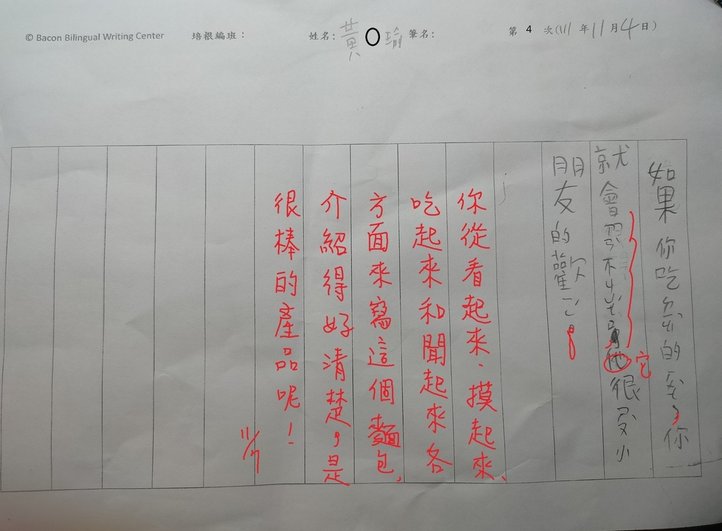 © Bacon Bilingual Writing Center 培根編班： 姓名：黃O瑜 筆名： 第 4 次(111年11月4日)
如果你吃的，你
就會他很受小
它
朋友的歡。
你從看起來、摸起來、
吃起來和聞起來各
方面來寫這個麵包，
介紹得好清楚，是
很棒的產品呢！
11/7